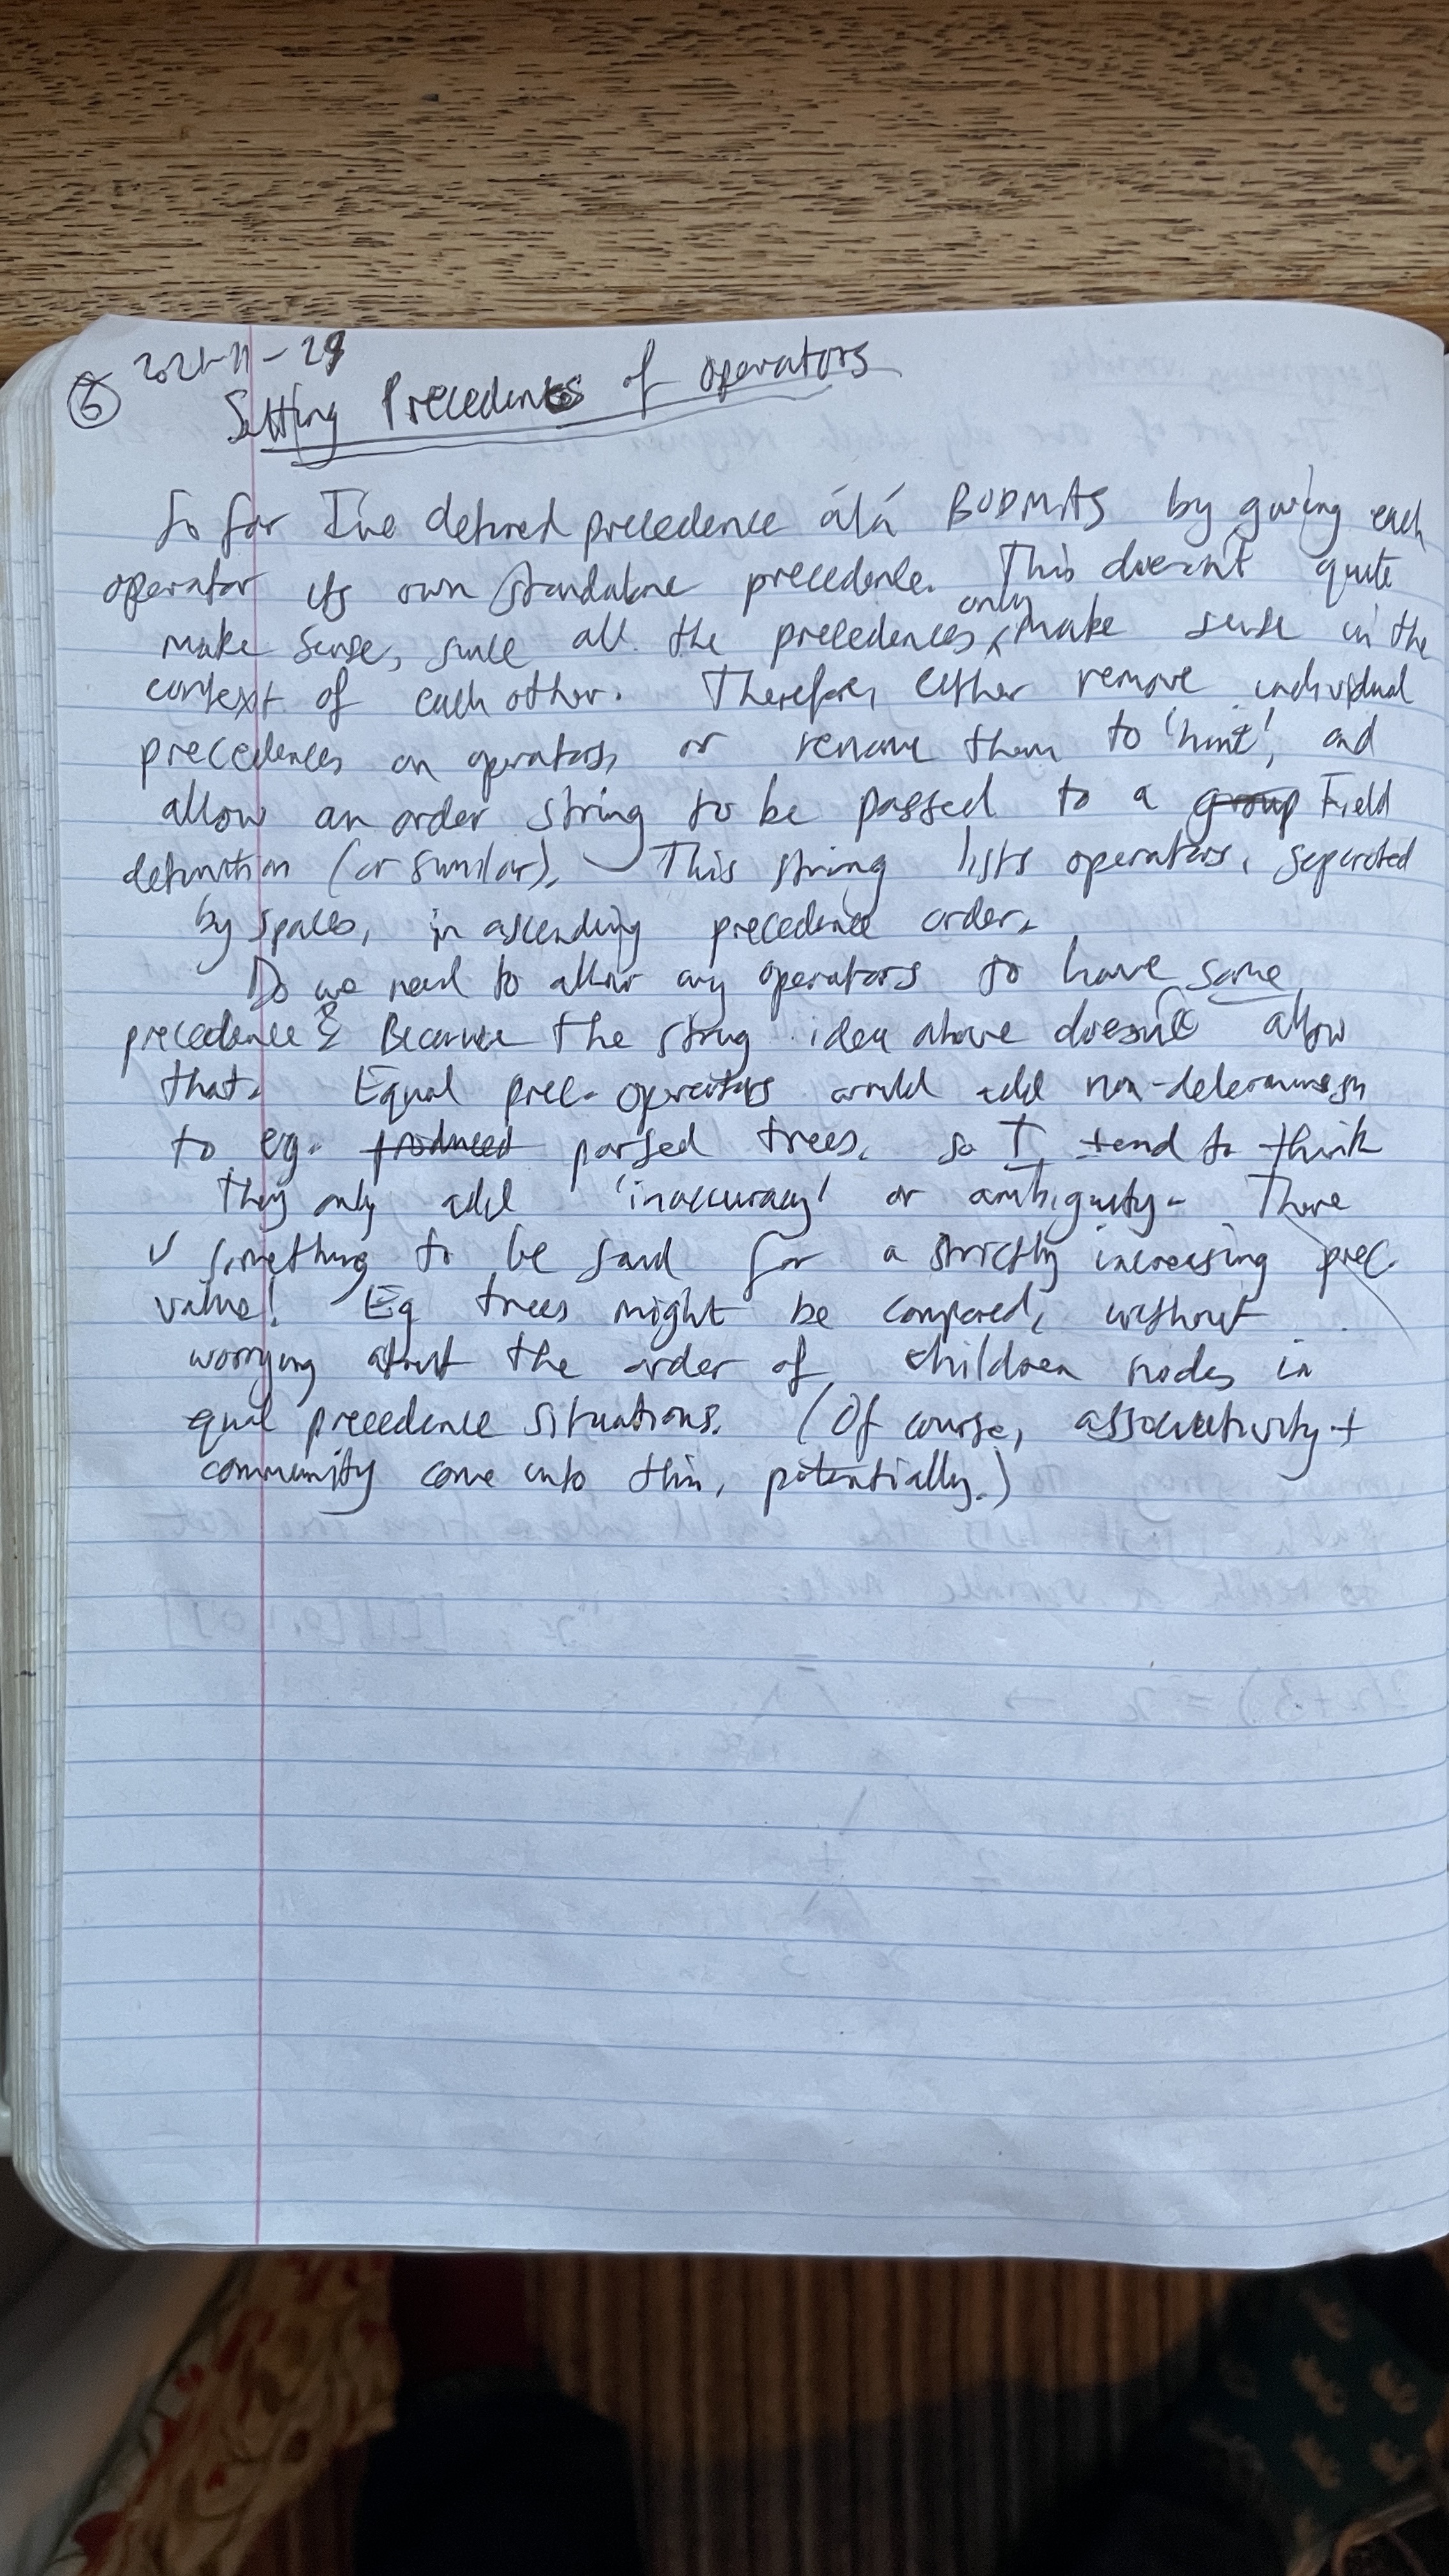 ⑥ 2021-11-29
Setting Precedences of operators
So far I've defined precedence álá BODMAS by giving each
operator its own standalone precedence. This doesn't quite
make sense, since all the precedences only make sense in the
context of each other. Therefore, either remove individual
precedences on operators, or rename them to 'hint', and
allow an order string to be passed to a group Field
definition (or similar). This string lists operators, separated
by spaces, in ascending precedence order.
Do we need to allow any operators to have same
precedence? Because the string idea above doesn't allow
that. Equal prec. operators would add non-determinism
to eg. produced parsed trees. So I tend to think
they only add 'inaccuracy' or ambiguity. There
is something to be said for a strictly increasing prec.
value! Eg trees might be compared, without
worrying about the order of children nodes in
equal precedence situations. (Of course, associativity +
community come into this, potentially.)